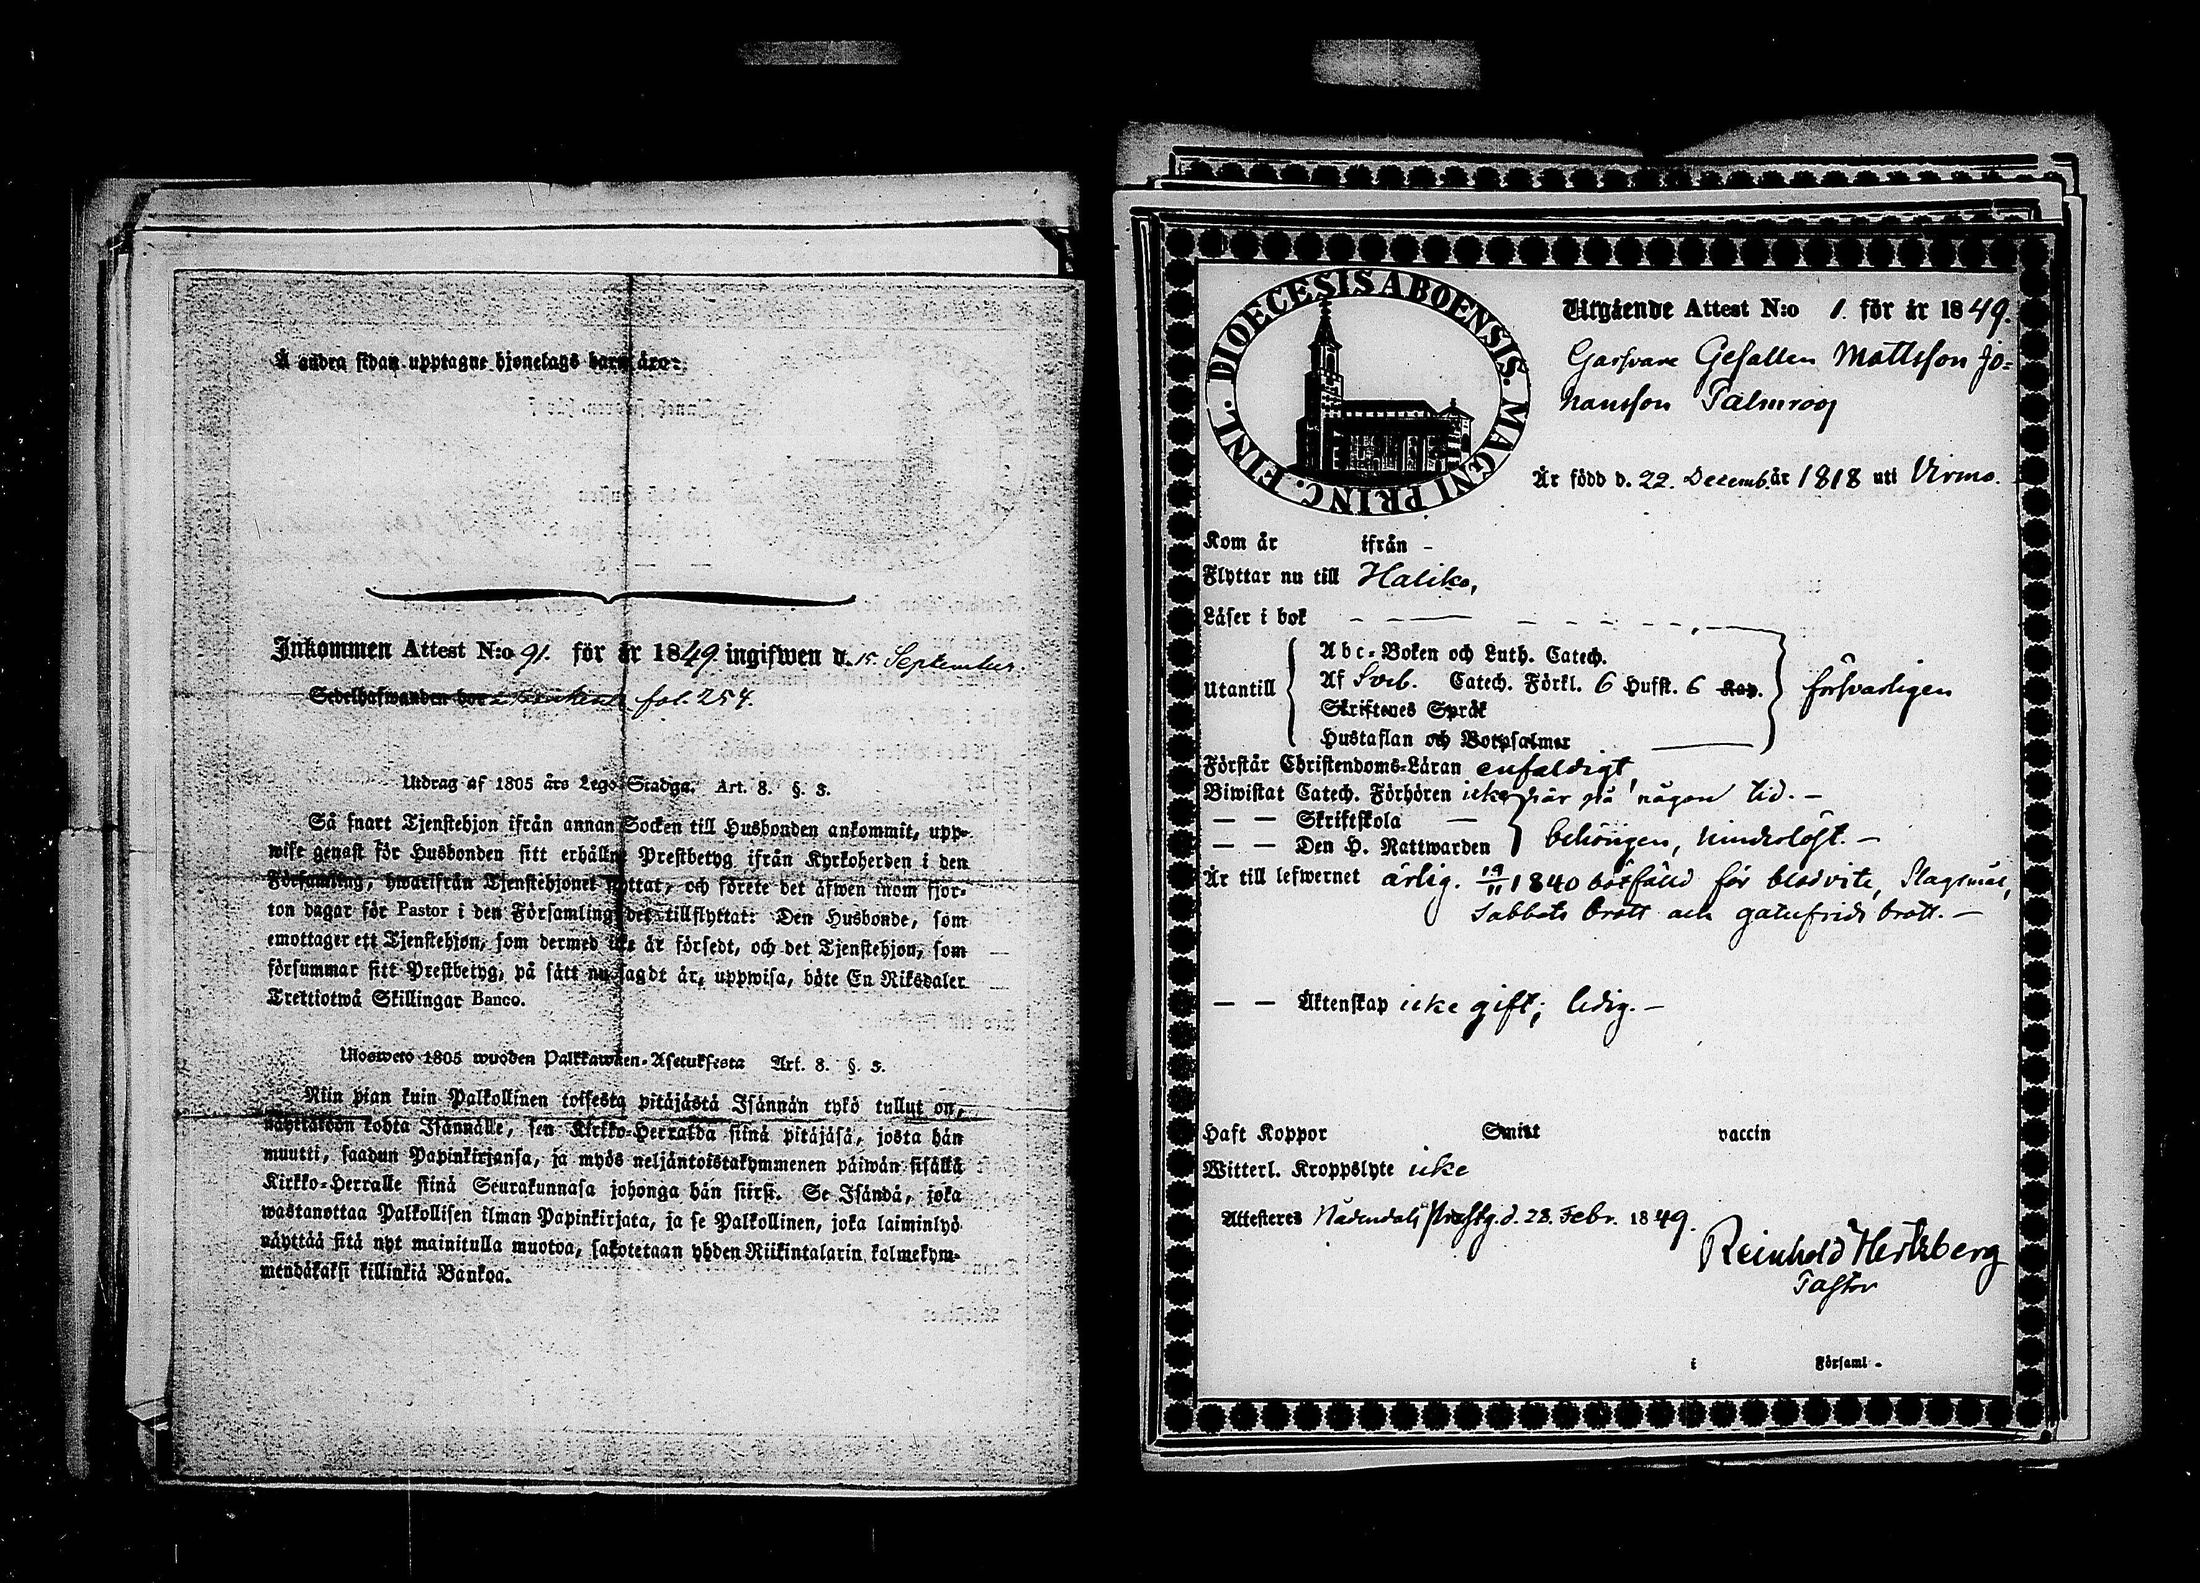 Å andra sidan upptagne hjonelags barn äro:
Inkommen Attest N:o 91. för år 1849. ingifwen d. 15. September.
Sedelhafwanden bor fol. 254.
Utdrag af 1805 års Lego-Stadga. Art. 8. §. 3.
Så snart Tjenstehjon ifrån annan Socken till Husbonden ankommit, upp-
wise genast för Husbonden sitt erhållne Prestbetyg ifrån Kyrkoherden i den
Församling, hwarifrån Tjenstehjonet flyttat, och förete det äfwen inom fjor-
ton dagar för Pastor i den Församling det tillflyttat: Den Husbonde, som
emottager ett Tjenstehjon, som dermed icke är försedt, och det Tjenstehjon, som
försummar sitt Prestbetyg, på sätt nu sagdt är, uppwisa, böte En Riksdaler
Trettiotwå Skillingar Banco.
Ulosweto 1805 wuoden Palkkawäen-Asetuksesta Art. 8. §. 3.
Niin pian kuin Palkollinen toisesta pitäjästä Isännän tykö tullut on,
näyttäköön kohta Isännälle, sen Kirkko-Herralda siinä pitäjäsä, josta hän
muutti, saadun Papinkirjansa, ja myös neljäntoistakymmenen päiwän sisällä
Kirkko-Herralle siinä Seurakunnasa johonga hän siirsi. Se Isändä, joka
wastanottaa Palkollisen ilman Papinkirjata, ja se Palkollinen, joka laiminlyö
näyttää sitä nyt mainitulla muotoa, sakotetaan yhden Riikintalarin kolmekym-
mendäkaksi killinkiä Bankoa.
DIOECESIS ABOENSIS. MAGNI PRINC. FINL.
Utgående Attest N:o 1. för år 1849.
Garfvare Gesällen Mattsson Jo-
hansson Palmroos
Är född d. 22. Decemb. år 1818 uti Virmo.
Kom år ifrån -
Flyttar nu till Haliko,
Läser i bok
Utantill
Abc-Boken och Luth. Catech.
Af Sveb. Catech. Förkl. 6 Hufst. 6 Kap. försvarligen
Skriftenes Språk
Hustaflan och Botpsalmer
Förstår Christendoms-Läran enfaldigt,
Biwistat Catech. Förhören icke här på någon tid. -
— — Skriftskola —
— — Den H. Nattwarden behörigen, hinderlöst. -
Är till lefwernet ärlig. 19/11 1840 bötfälld för blodvite, Slagsmål,
Sabbats brott och gatufrids brott. -
— — Äktenskap icke gift; ledig. -
Haft Koppor Smitt vaccin
Witterl. Kroppslyte icke
Attesteres Nådendals Prestg. d. 28. Febr. 1849.
Reinhold Hertzberg
Pastor
i Församl -